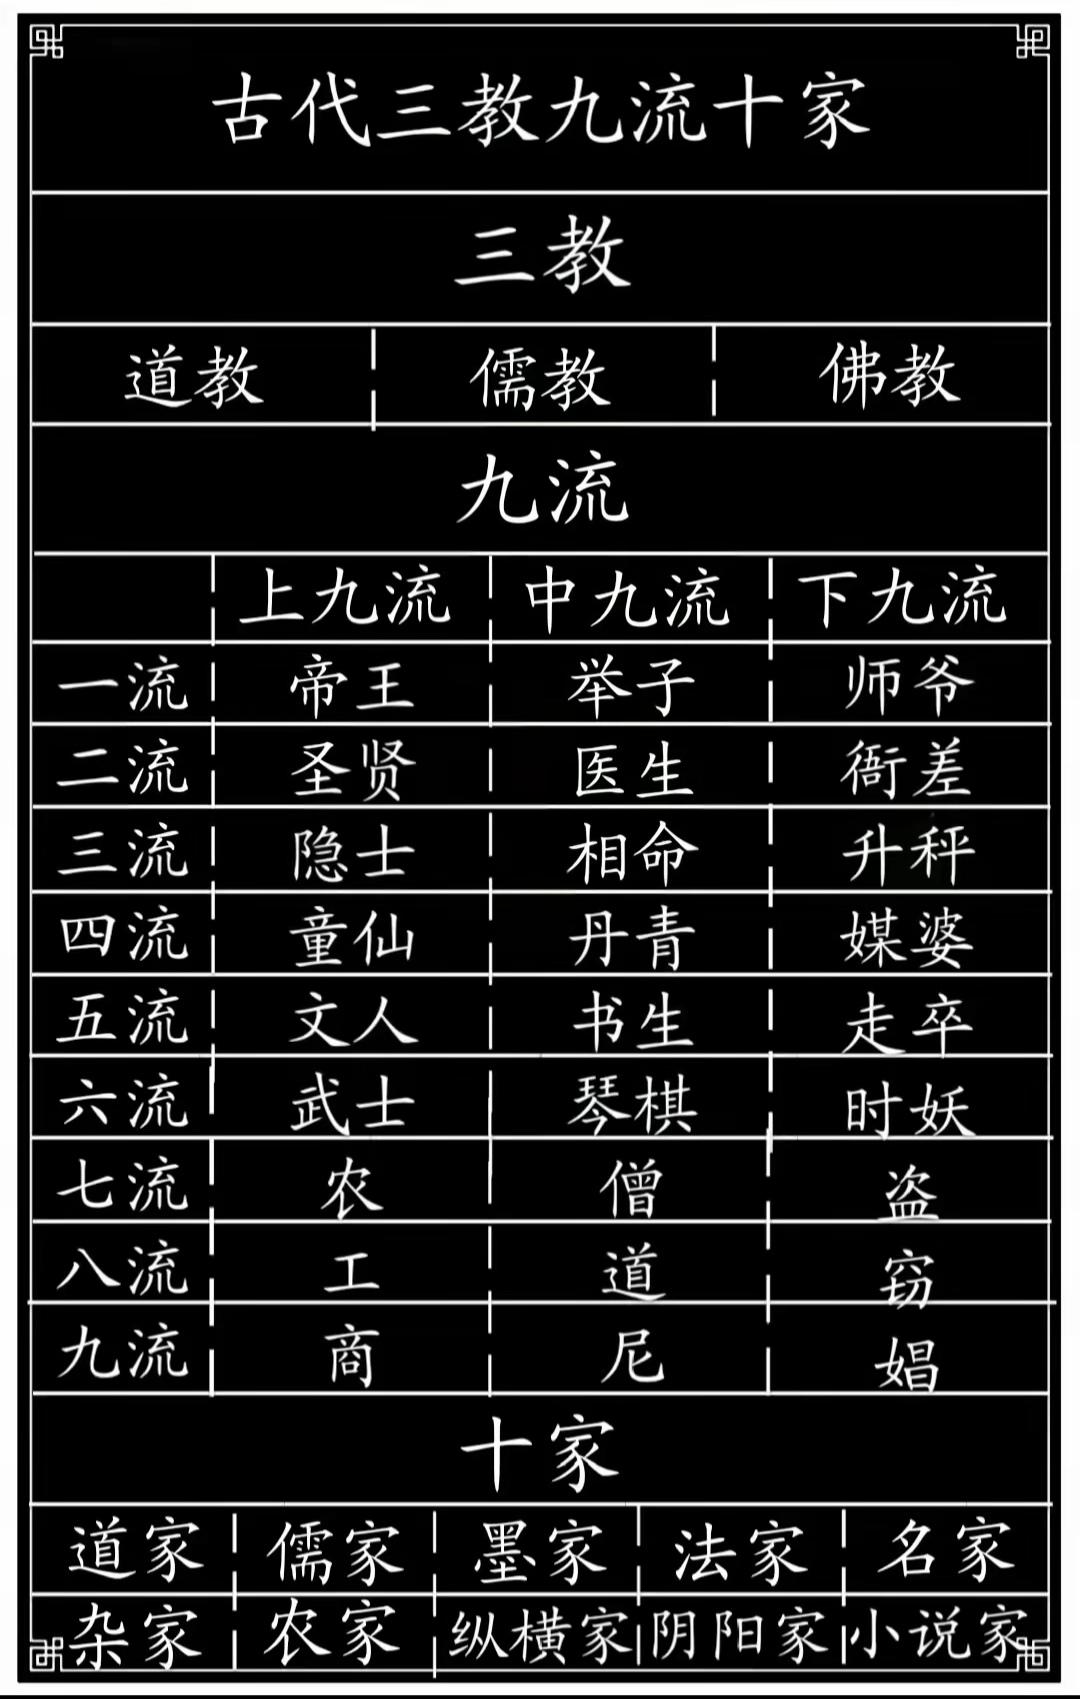 古代三教九流十家
三教
道教 儒教 佛教
九流
上九流 中九流 下九流
一流 帝王 举子 师爷
二流 圣贤 医生 衙差
三流 隐士 相命 升秤
四流 童仙 丹青 媒婆
五流 文人 书生 走卒
六流 武士 琴棋 时妖
七流 农 僧 盗
八流 工 道 窃
九流 商 尼 娼
十家
道家 儒家 墨家 法家 名家
杂家 农家 纵横家 阴阳家 小说家